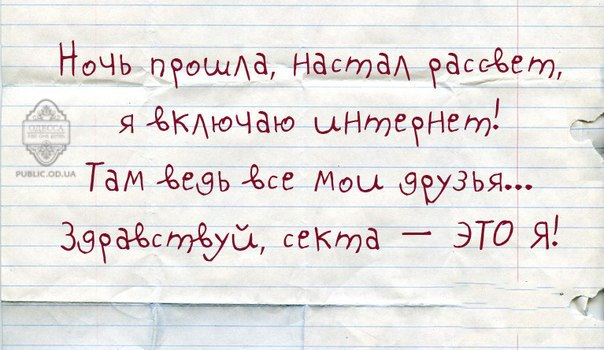 Ночь прошла, настал рассвет,
я включаю интернет!
ОДЕССА
PUBLIC.OD.UA
Там ведь все мои друзья...
Здравствуй, секта — ЭТО Я!